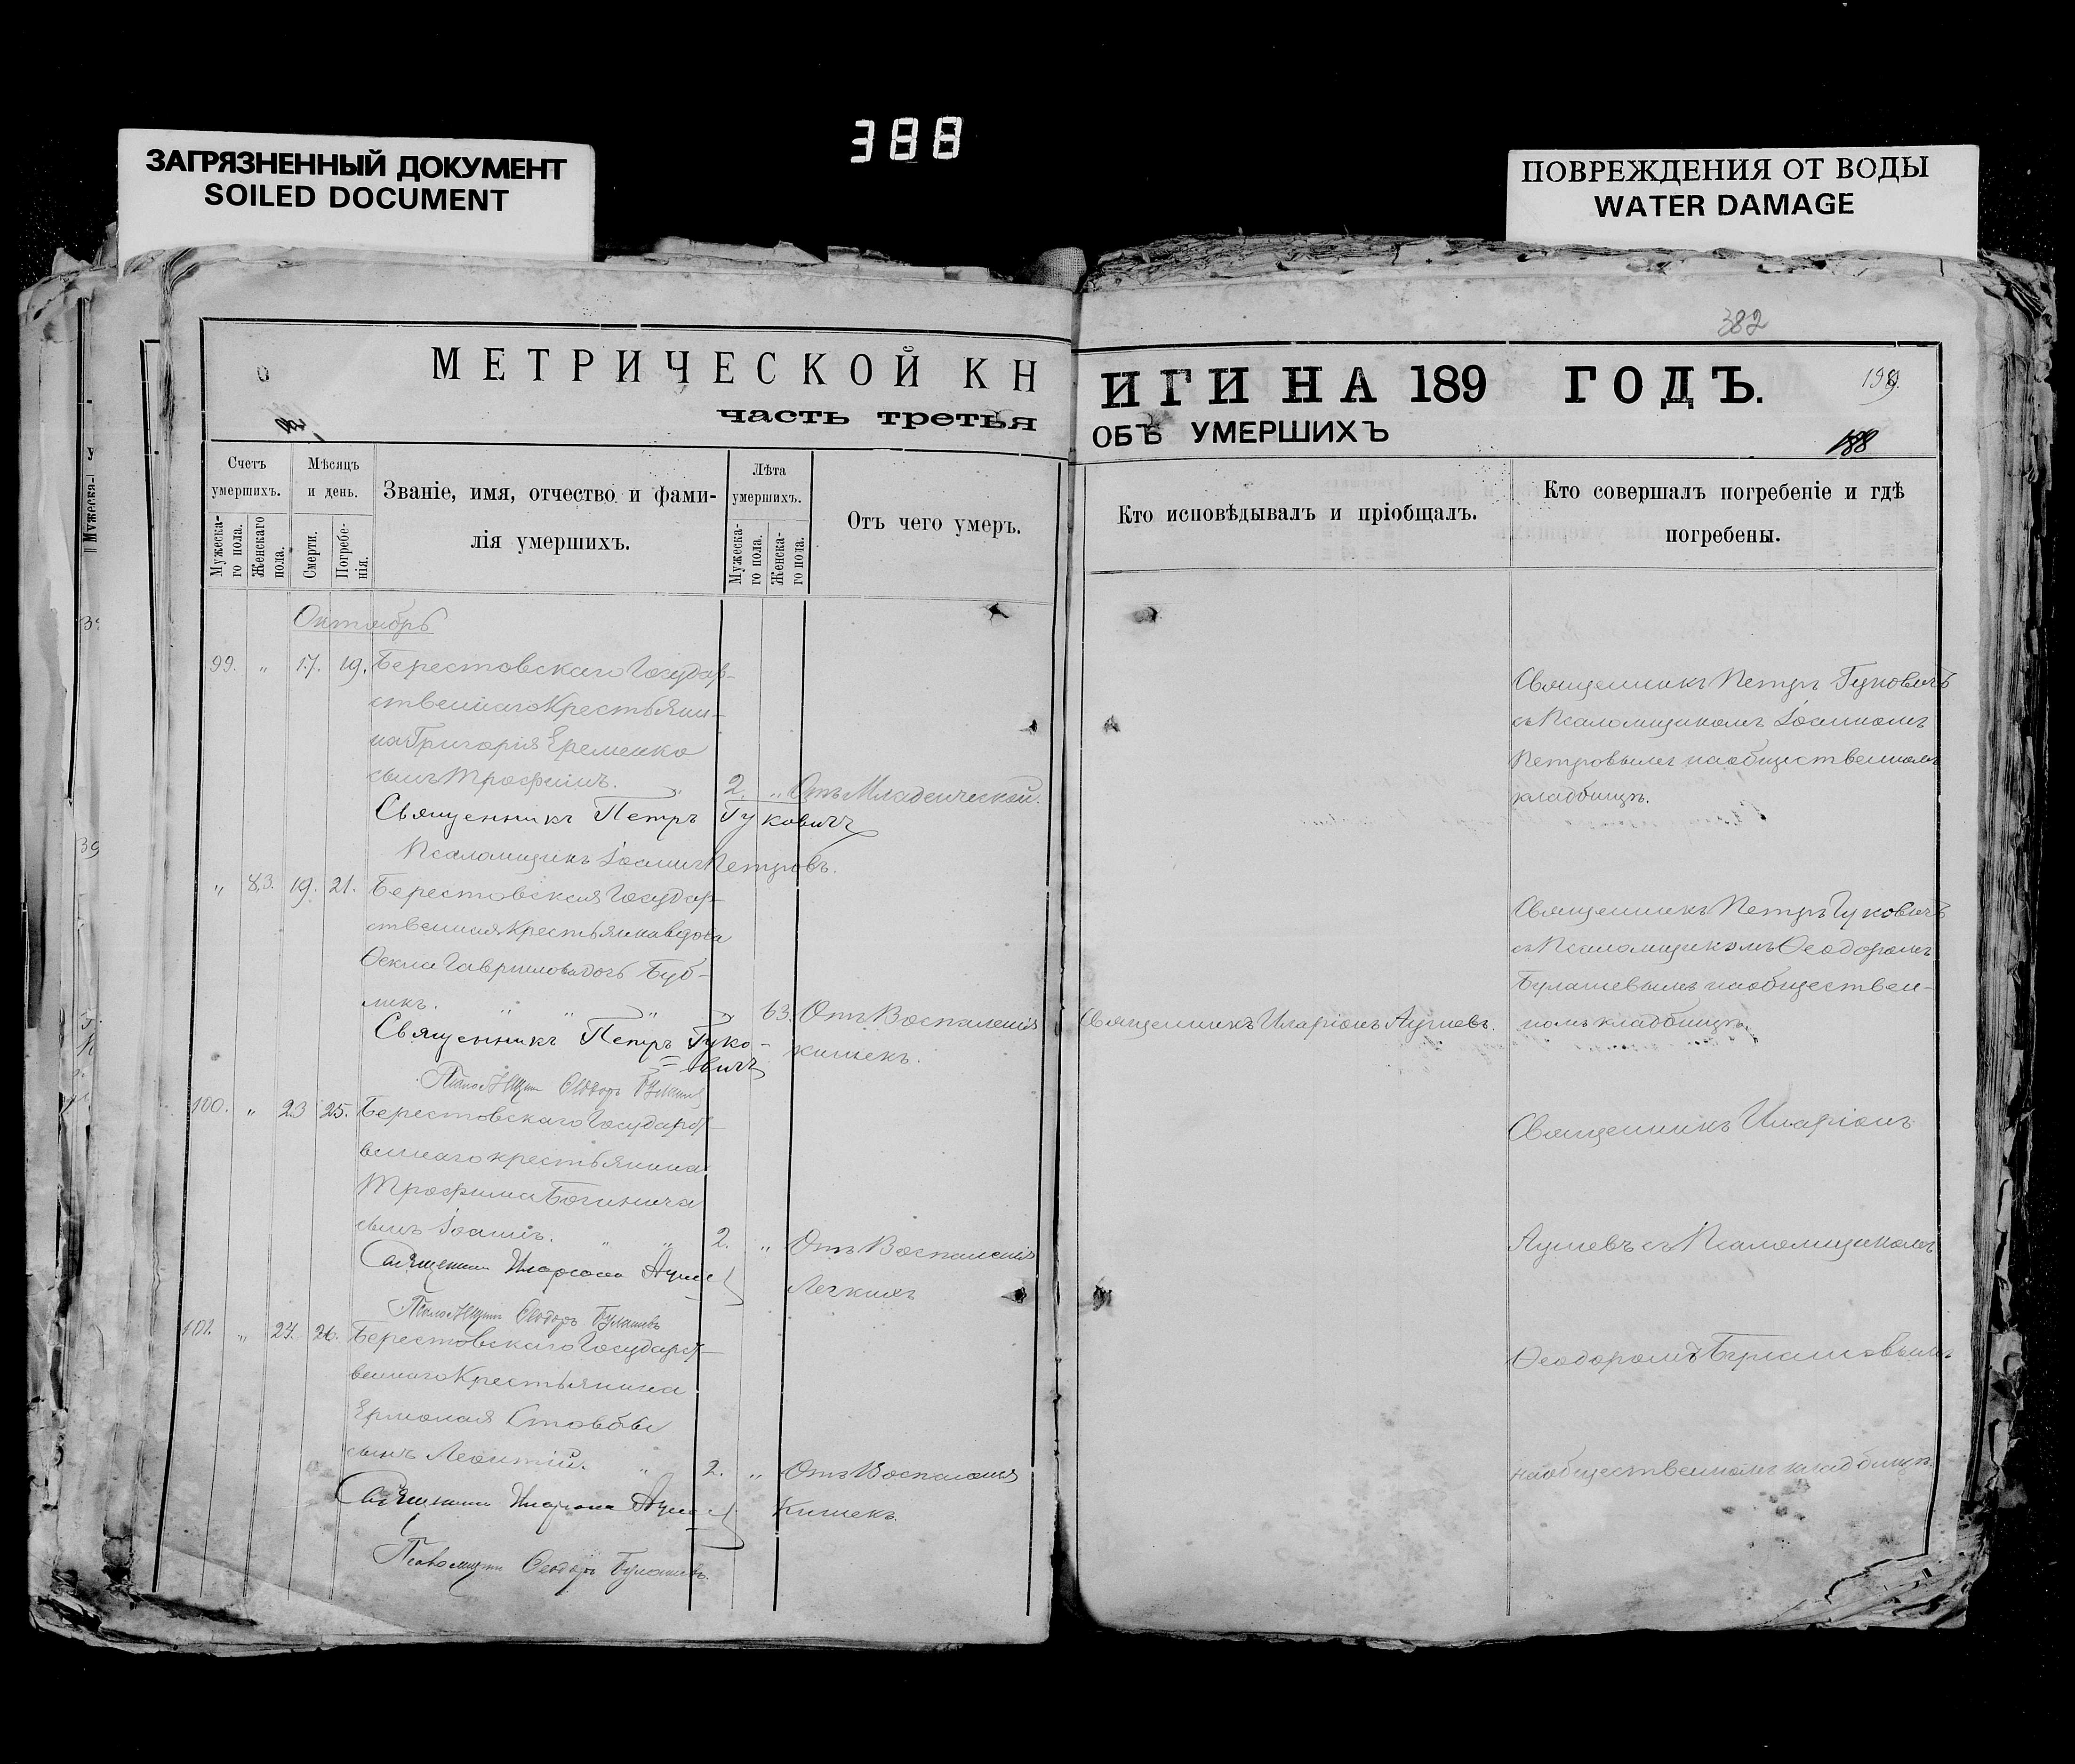 388
ЗАГРЯЗНЕННЫЙ ДОКУМЕНТ
SOILED DOCUMENT
ПОВРЕЖДЕНИЯ ОТ ВОДЫ
WATER DAMAGE
382
МЕТРИЧЕСКОЙ КН
часть третья
Счетъ умершихъ.
Мужеска-го пола.
Женскаго пола.
Мѣсяцъ и день.
Смерти.
Погребе-нія.
Званіе, имя, отчество и фами-
лія умершихъ.
Лѣта умершихъ.
Мужеска-го пола.
Женска-го пола.
Отъ чего умеръ.
Октябрь
99. " 17. 19. Берестовскаго Государ-
ственнаго Крестьяни-
на Григорія Еременко
сынъ Трофимъ. " 2. " Отъ Младенческой.
Священникъ Петръ Гуковичъ
Псаломщикъ Іоаннъ Петровъ.
" 83. 19. 21. Берестовская Государ-
ственная Крестьянка вдова
Ѳекла Гаврилова дочь Буб-
ликъ. " " " " 63. Отъ Воспаленія
кишекъ.
Священникъ Петръ Гуко-
вичъ
Псаломщикъ Ѳеодоръ Булашевъ
100. " 23 25. Берестовскаго Государст-
веннаго крестьянина
Трофима
сынъ Іоаннъ. " " 2. " Отъ Воспаленія
Легкихъ
Священникъ Иларіонъ
Псаломщикъ Ѳеодоръ Булашевъ
101. " 24. 26. Берестовскаго Государст-
веннаго Крестьянина
Ермолая
сынъ Леонтій. " 2. " Отъ Воспаленія
Кишекъ.
Священникъ Иларіонъ
Псаломщикъ Ѳеодоръ Булашевъ.
ИГИ НА 189 ГОДЪ.
199.
ОБЪ УМЕРШИХЪ
188
Кто исповѣдывалъ и пріобщалъ.
Кто совершалъ погребеніе и гдѣ
погребены.
Священникъ Петръ Гуковичъ
съ Псаломщикомъ Іоанномъ
Петровымъ на общественномъ
кладбищѣ.
Священникъ Иларіонъ
Священникъ Петръ Гуковичъ
съ Псаломщикомъ Ѳеодоромъ
Булашевымъ на обществен-
номъ кладбищѣ.
Священникъ Иларіонъ
съ Псаломщикомъ
Ѳеодоромъ Булашовымъ
на общественномъ кладбищѣ.